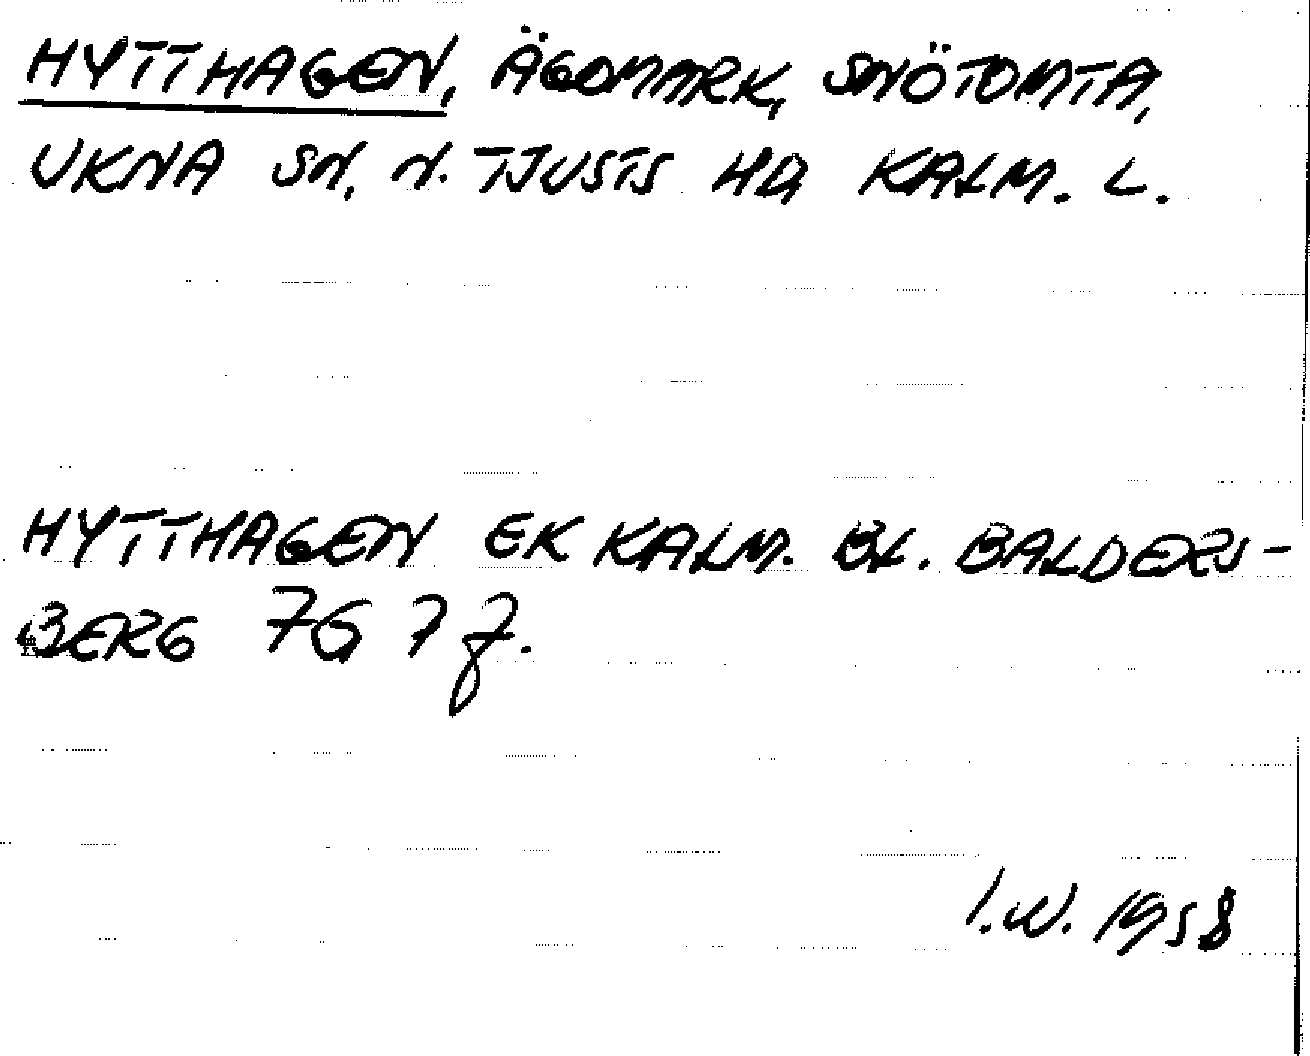 HYTTHAGEN, ÄGOMARK, SNÖTOMTA,
UKNA SN, N. TJUSTS HD KALM. L.
HYTTHAGEN EK KALM. BL. BALDERS-
BERG 7G 7f.
I.W. 1958